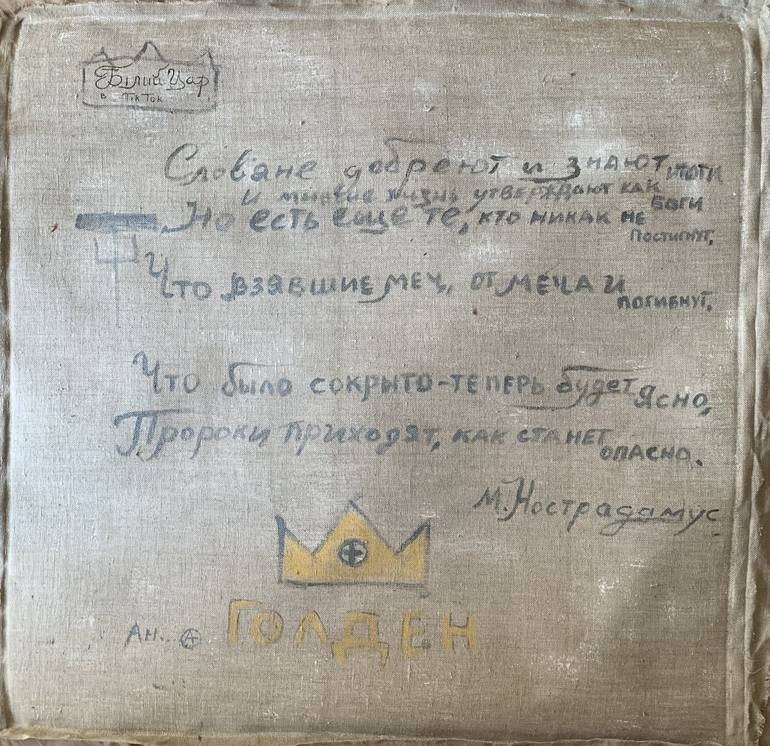 Білий Цар
в Tik Tok
Словяне добреют и знают итоги
И мирные жизнь утверждают как Боги
Но есть еще те, кто никак не постигнут,
Что взявшие меч, от меча и погибнут,
Что было сокрыто-теперь будет ясно,
Пророки приходят, как станет опасно.
М. Нострадамус
ГОЛДЕН
Ан...